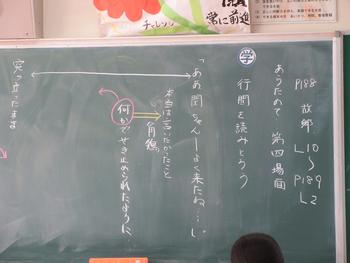 常に前進
P188 故郷 L10
〜P189 L2
あらためて 第四場面
学 行間を読みとろう
「ああ閏ちゃん—よく来たね…。」
本当は言いたかったこと
角鶏
何かでせき止められたように
突っ立ったまま